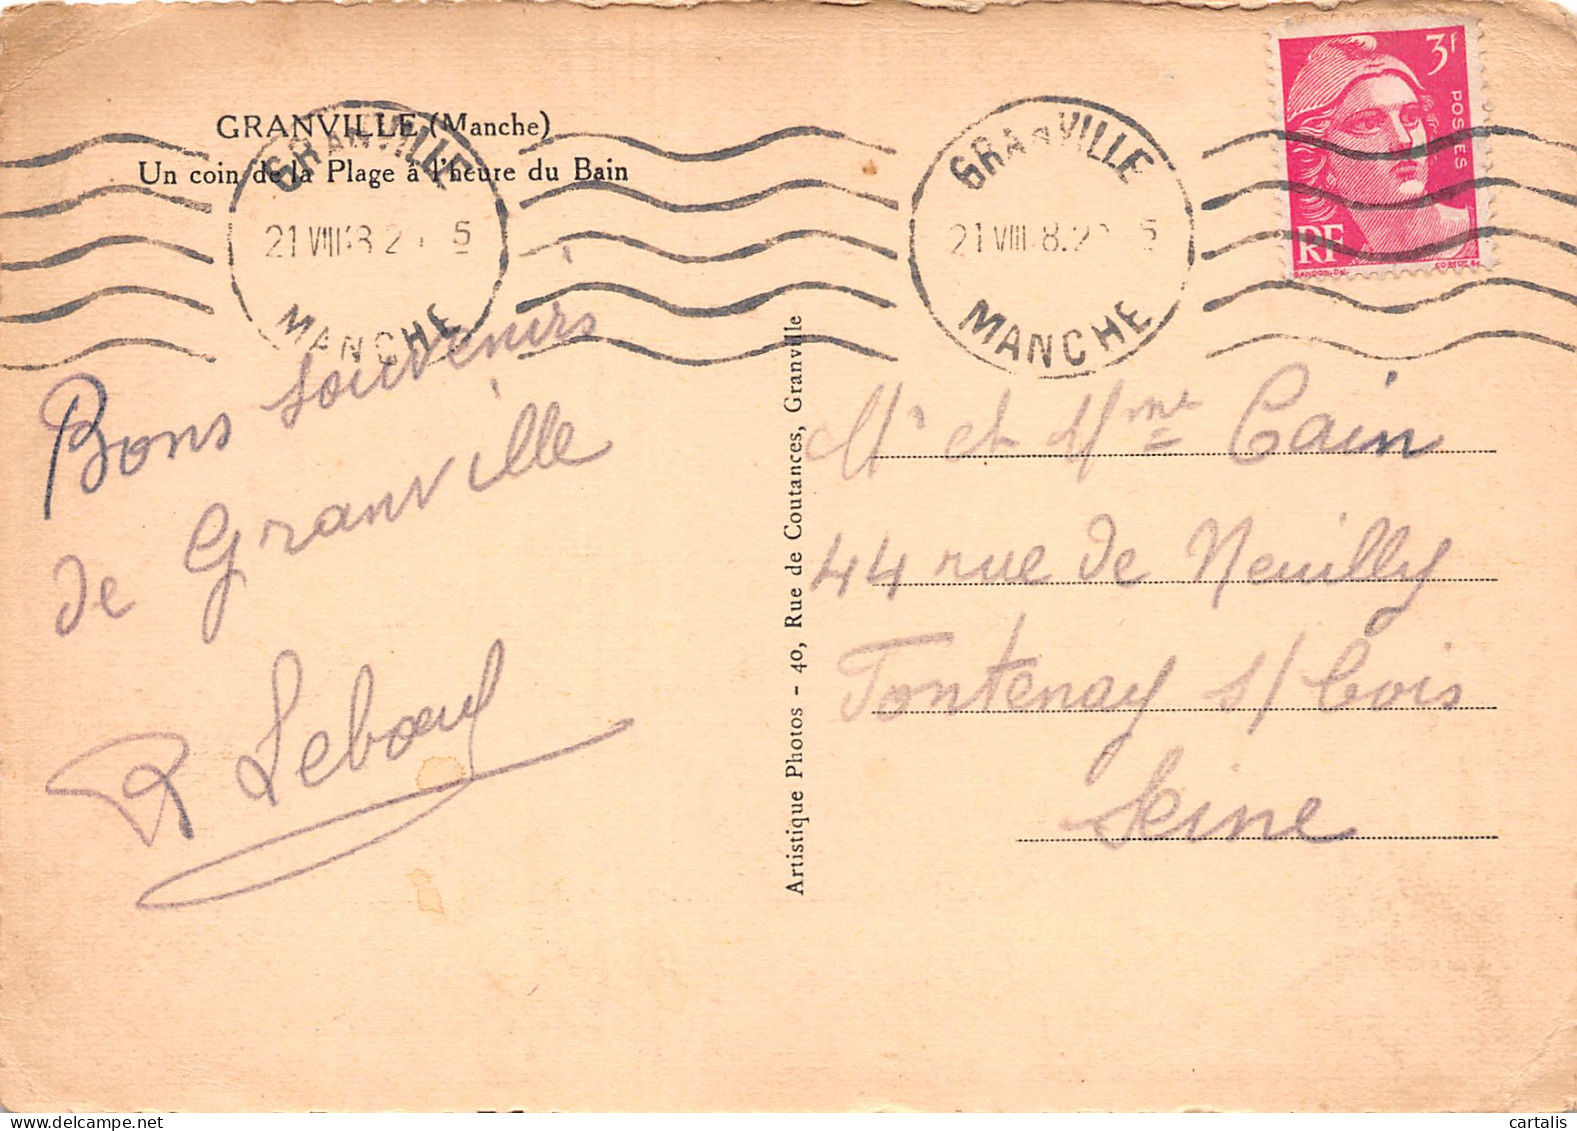 GRANVILLE (Manche)
Un coin de la Plage à l'heure du Bain
GRANVILLE
21 VIII
MANCHE
GRANVILLE
21 VIII
MANCHE
3f
POSTES
RF
GANDON-DEL
Bons souvenirs
de Granville
R Leboeuf
Artistique Photos - 40, Rue de Coutances, Granville
Mr et Mme Cain
44 rue de Neuilly
Fontenay s/ bois
Seine
cartalis
www.delcampe.net